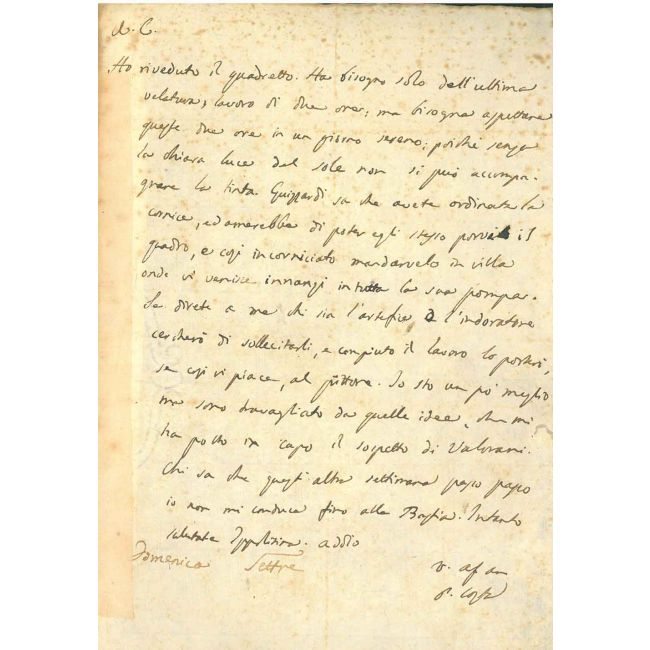 A. C.
Ho riveduto il quadretto. Ha bisogno solo dell'ultima
velatura, lavoro di due ore; ma bisogna aspettare
queste due ore in un giorno sereno; poiché senza
la chiara luce del sole non si può accompa-
gnare la tinta. Guizzardi sa che avete ordinata la
cornice, ed amerebbe di poter egli stesso porvi il
quadro, e così incorniciato mandarvelo in villa
onde vi venisse innanzi in tutta la sua pompa.
Se direte a me chi sia l'artefice e l'indoratore
cercherò di sollecitarli, e compiuto il lavoro lo porterò,
se così vi piace, al pittore. Io sto un po' meglio
ma sono travagliato da quelle idee, che mi
ha posto in capo il sospetto di Valorani.
Chi sa che quest'altra settimana passo passo
io non mi conduca fino alla Bastia. Intanto
salutate Ippolitina. addio
Domenica Settre
v. af am
P. Costa